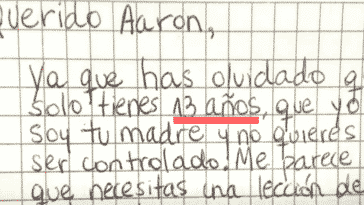 Querido Aaron,
Ya que has olvidado q
solo tienes 13 años, que yo
soy tu madre y no quieres
ser controlado. Me parece
que necesitas una lección de